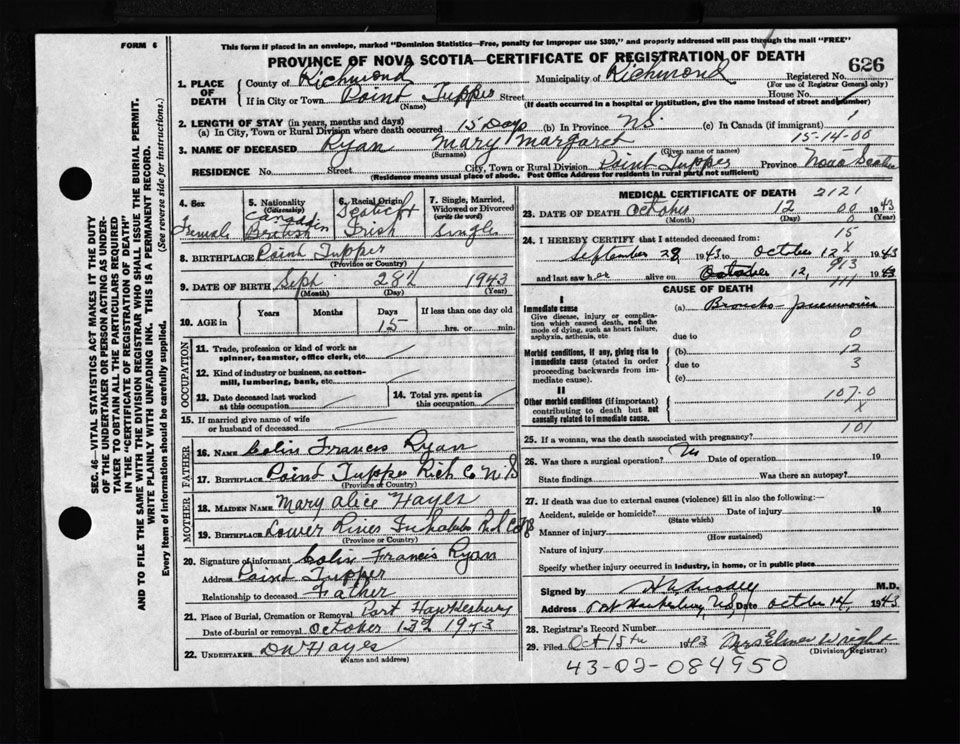 FORM 6
This form if placed in an envelope, marked "Dominion Statistics—Free, penalty for improper use $300," and properly addressed will pass through the mail "FREE"
PROVINCE OF NOVA SCOTIA—CERTIFICATE OF REGISTRATION OF DEATH
626
1. PLACE OF DEATH
County of Richmond Municipality of Richmond Registered No.
(For use of Registrar General only)
If in City or Town Point Tupper Street House No.
(Name) (If death occurred in a hospital or institution, give the name instead of street and number)
2. LENGTH OF STAY (in years, months and days)
(a) In City, Town or Rural Division where death occurred 15 Days (b) In Province N.S. (c) In Canada (if immigrant) 1
15-14-00
3. NAME OF DECEASED Ryan Mary Margaret
(Surname) (Given name or names)
RESIDENCE No. Street City, Town or Rural Division Point Tupper Province Nova Scotia
(Residence means usual place of abode. Post Office Address for residents in rural parts not sufficient)
4. Sex
Female
5. Nationality
(Citizenship)
Canadian
British
6. Racial Origin
Scotch
Irish
7. Single, Married, Widowed or Divorced
(write the word)
Single
8. BIRTHPLACE Point Tupper
(Province or Country)
9. DATE OF BIRTH Sept 28th 1943
(Month) (Day) (Year)
10. AGE in Years Months Days 15 If less than one day old
hrs. or min.
OCCUPATION
11. Trade, profession or kind of work as spinner, teamster, office clerk, etc.
12. Kind of industry or business, as cotton-mill, lumbering, bank, etc.
13. Date deceased last worked at this occupation
14. Total yrs. spent in this occupation
15. If married give name of wife or husband of deceased
FATHER
16. NAME Colin Francis Ryan
17. BIRTHPLACE Point Tupper Rich Co N.S
(Province or Country)
MOTHER
18. MAIDEN NAME Mary Alice Hayes
19. BIRTHPLACE Lower River Inhabits
(Province or Country)
20. Signature of informant Colin Francis Ryan
Address Point Tupper
Relationship to deceased Father
21. Place of Burial, Cremation or Removal Port Hawkesbury
Date of burial or removal October 13th 1943
22. UNDERTAKER D W Hayes
(Name and address)
MEDICAL CERTIFICATE OF DEATH 2121
23. DATE OF DEATH October 12 00 1943
(Month) (Day) (Year)
15
24. I HEREBY CERTIFY that I attended deceased from:
September 28 1943 to October 12 1943
x
913
and last saw her alive on October 12, 1943
111
CAUSE OF DEATH
I
Immediate cause (a) Broncho-pneumonia
Give disease, injury or complication which caused death, not the mode of dying, such as heart failure, asphyxia, asthenia, etc.
due to 0
Morbid conditions, if any, giving rise to immediate cause (stated in order proceeding backwards from immediate cause).
(b) 12
due to 3
(c)
II
Other morbid conditions (if important) contributing to death but not causally related to immediate cause.
107-0
x
101
25. If a woman, was the death associated with pregnancy?
26. Was there a surgical operation? No Date of operation. 19
State findings Was there an autopsy?
27. If death was due to external causes (violence) fill in also the following:—
Accident, suicide or homicide? Date of injury 19
(State which)
Manner of injury
(How sustained)
Nature of injury
Specify whether injury occurred in industry, in home, or in public place
Signed by M.D.
Address Port Hawkesbury, N.S. Date October 14 1943
28. Registrar's Record Number
29. Filed Oct 15th 1943 Mrs Elmer Wright
(Division Registrar)
43-02-084950
SEC. 46—VITAL STATISTICS ACT MAKES IT THE DUTY
OF THE UNDERTAKER OR PERSON ACTING AS UNDERTAKER TO OBTAIN ALL THE PARTICULARS REQUIRED
IN THE "CERTIFICATE OF REGISTRATION OF DEATH"
AND TO FILE THE SAME WITH THE DIVISION REGISTRAR WHO SHALL ISSUE THE BURIAL PERMIT.
WRITE PLAINLY WITH UNFADING INK. THIS IS A PERMANENT RECORD.
Every item of information should be carefully supplied. (See reverse side for instructions.)